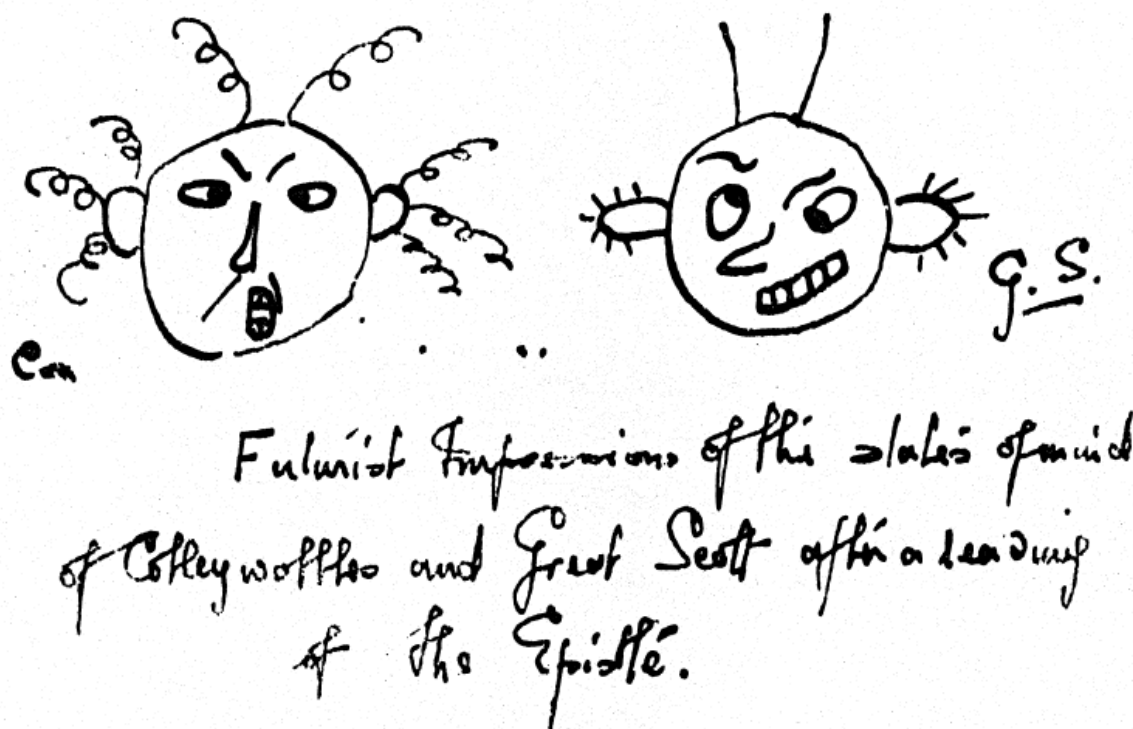 G. S.
Futurist Impressions of the states of mind
of Colleywobbles and Great Scott after a reading
of the Epistle.